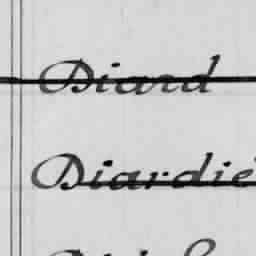 Diard
Diardie